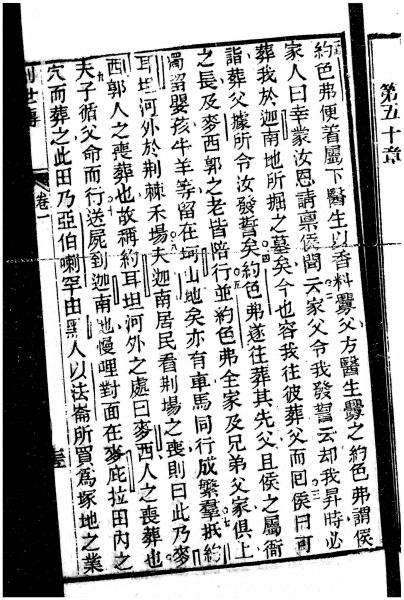 第五十章
約色弗便着屬下醫生以香料釁父方醫生釁之約色弗謂侯
家人曰幸蒙汝恩請禀侯聞云家父令我發誓云却我昇時必
葬我於迦南地所掘之墓矣今也容我往彼葬父而囬侯曰可
詣葬父據所令汝發誓矣約色弗遂徃葬其先父且侯之屬衙
之長及麥西郭之老皆陪行並約色弗全家及兄弟父家俱上
獨留嬰孩牛羊等留在坷山地矣亦有車馬同行成繁羣抵約
耳坦河外於荆棘禾場夫迦南居民看荆場之喪則曰此乃麥
西郭人之喪葬也故稱約耳坦河外之處曰麥西人之喪葬也
夫子循父命而行送屍到迦南地慢哩對面在麥庇拉田內之
穴而葬之此田乃亞伯喇罕由黑人以法崙所買爲塚地之業
世傳
卷一